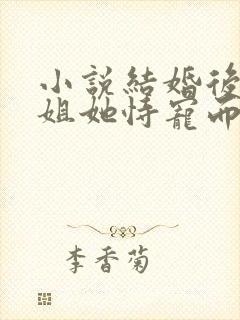 小說結婚後
姐她恃寵而
李香菊